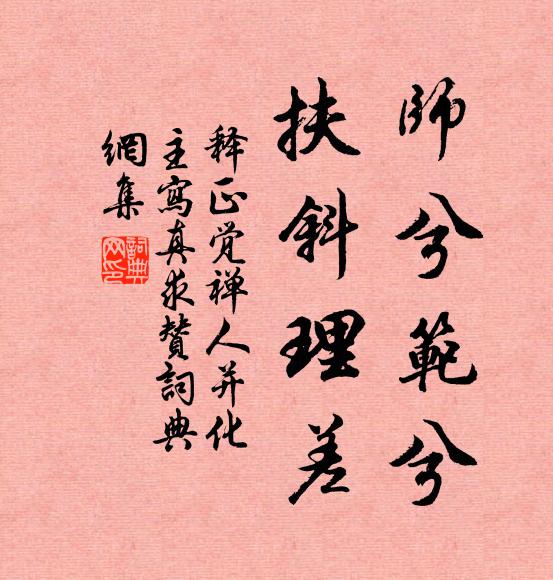 師兮範兮
扶斜理差
释正觉禅人并化
主寫真求賛詞典
網集
詞典
网印